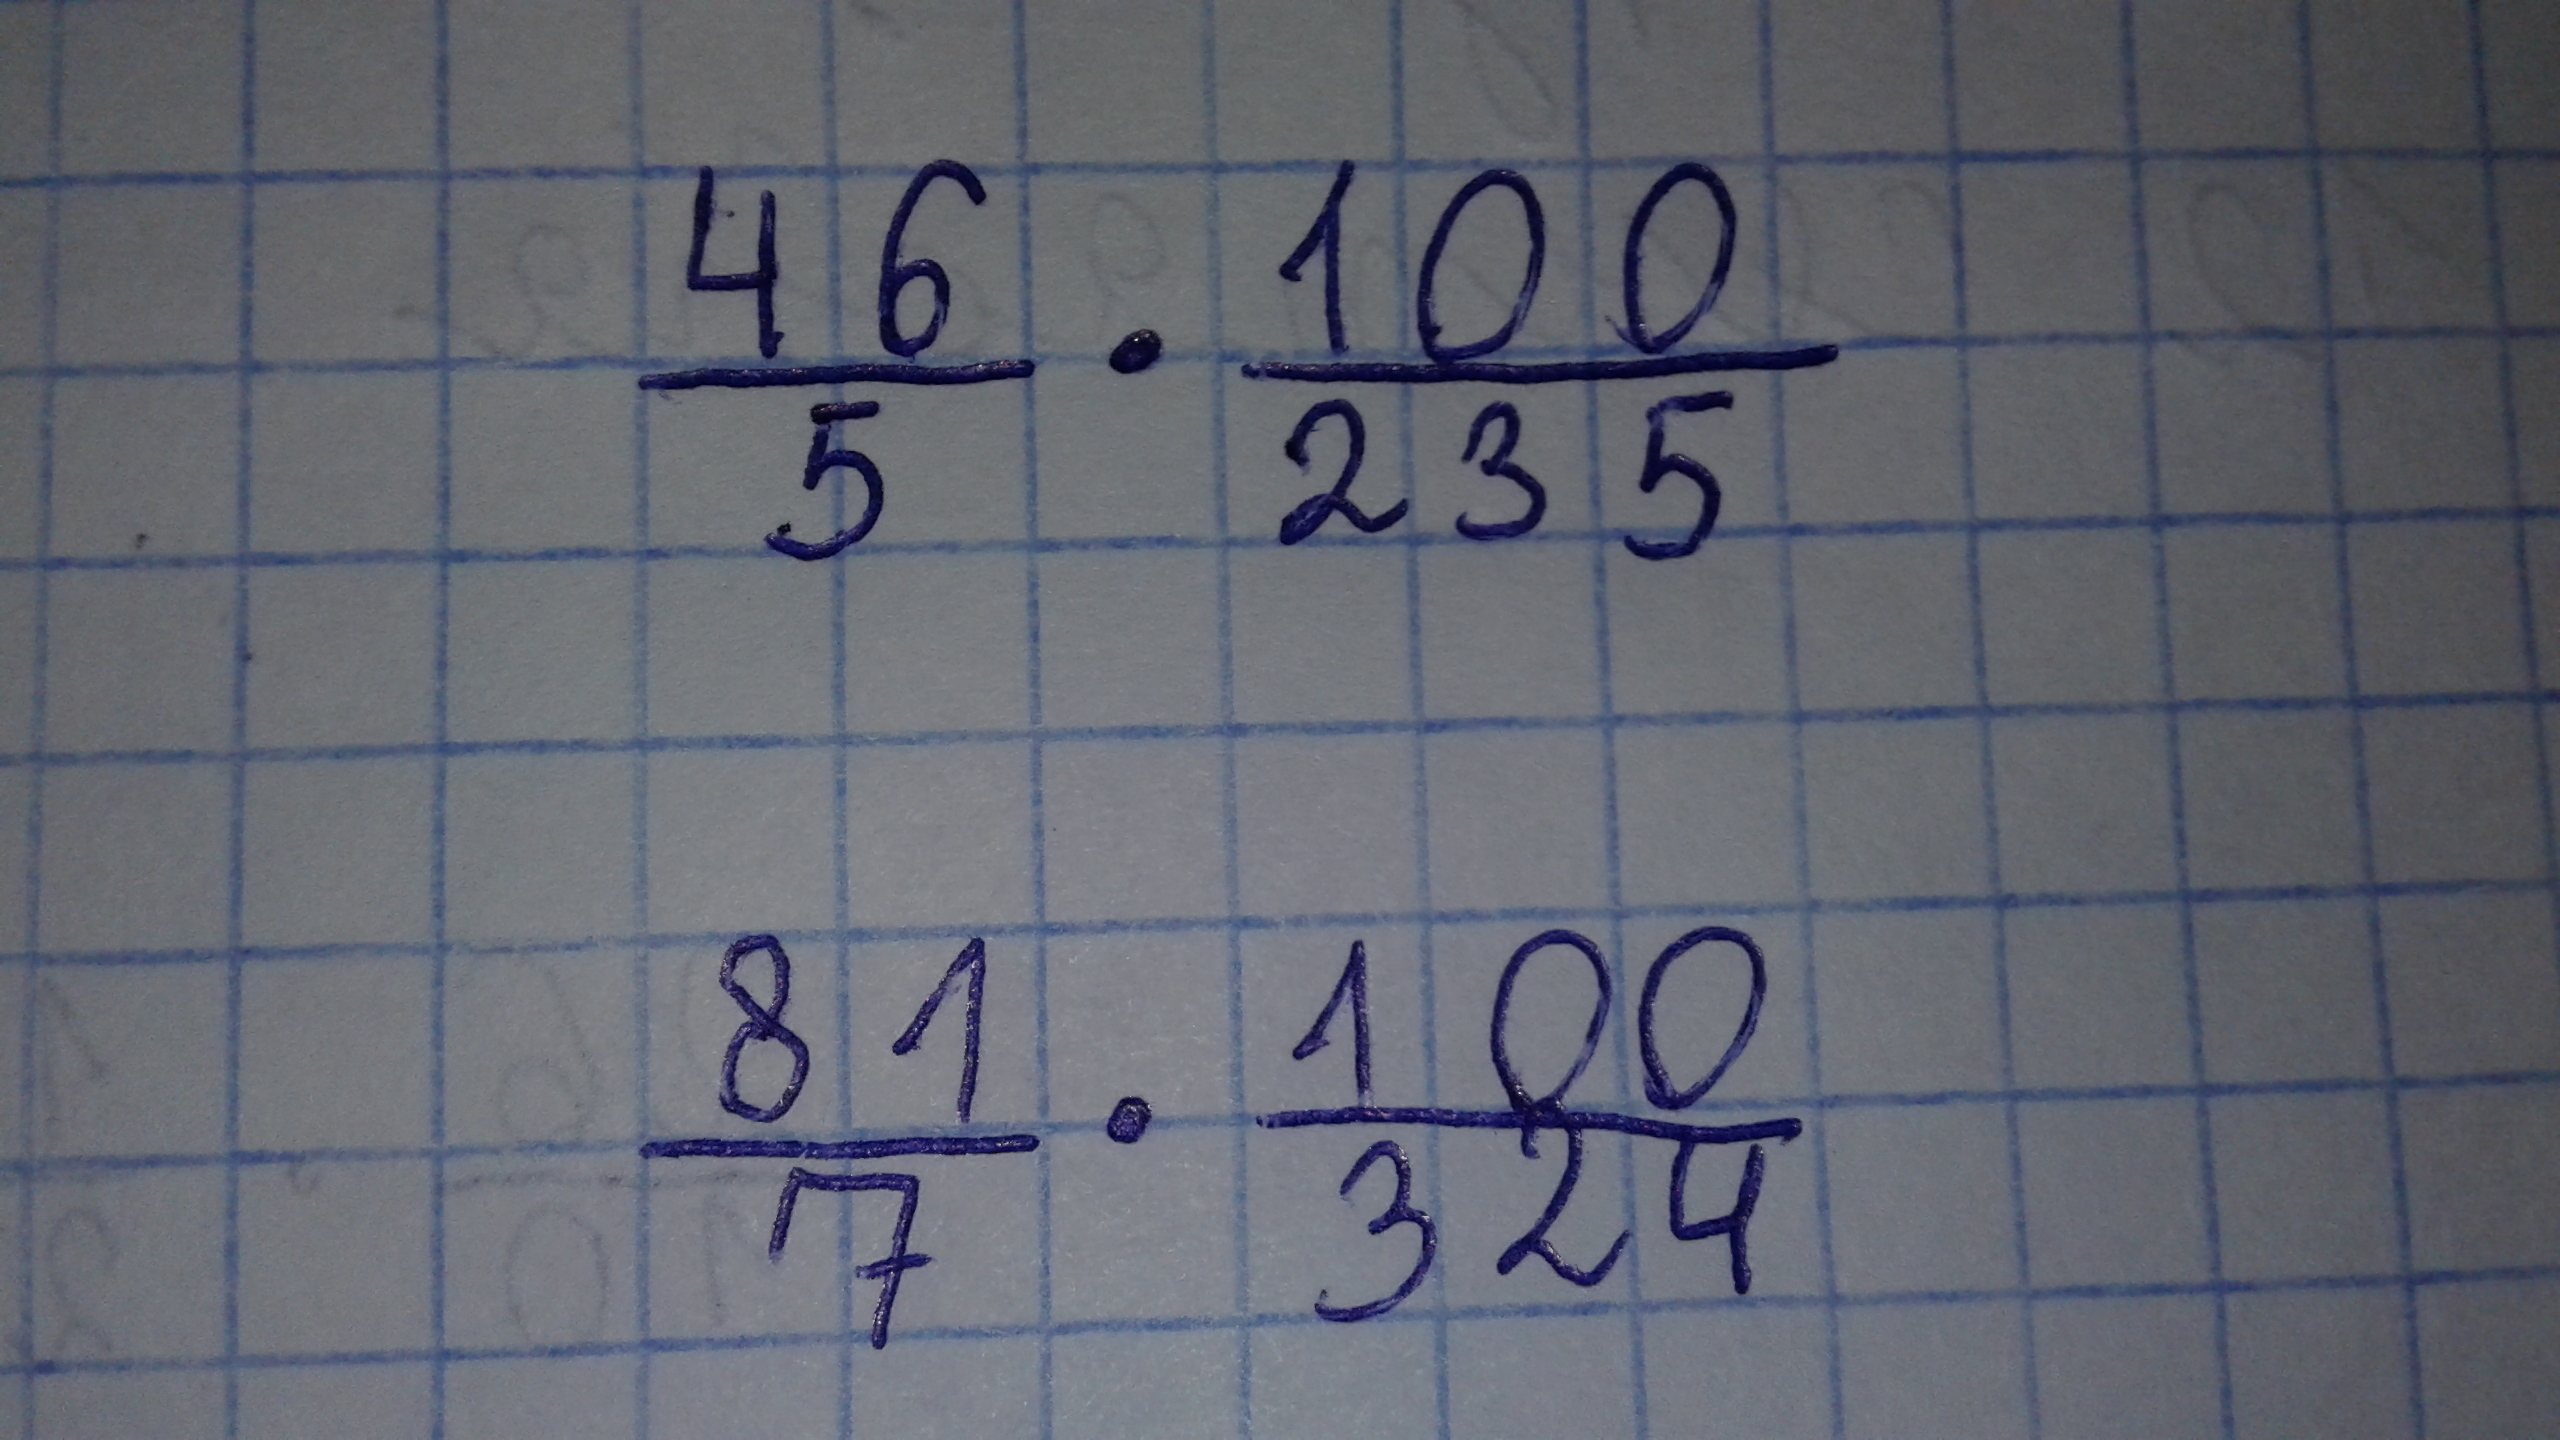 46/5 · 100/235
81/7 · 100/324